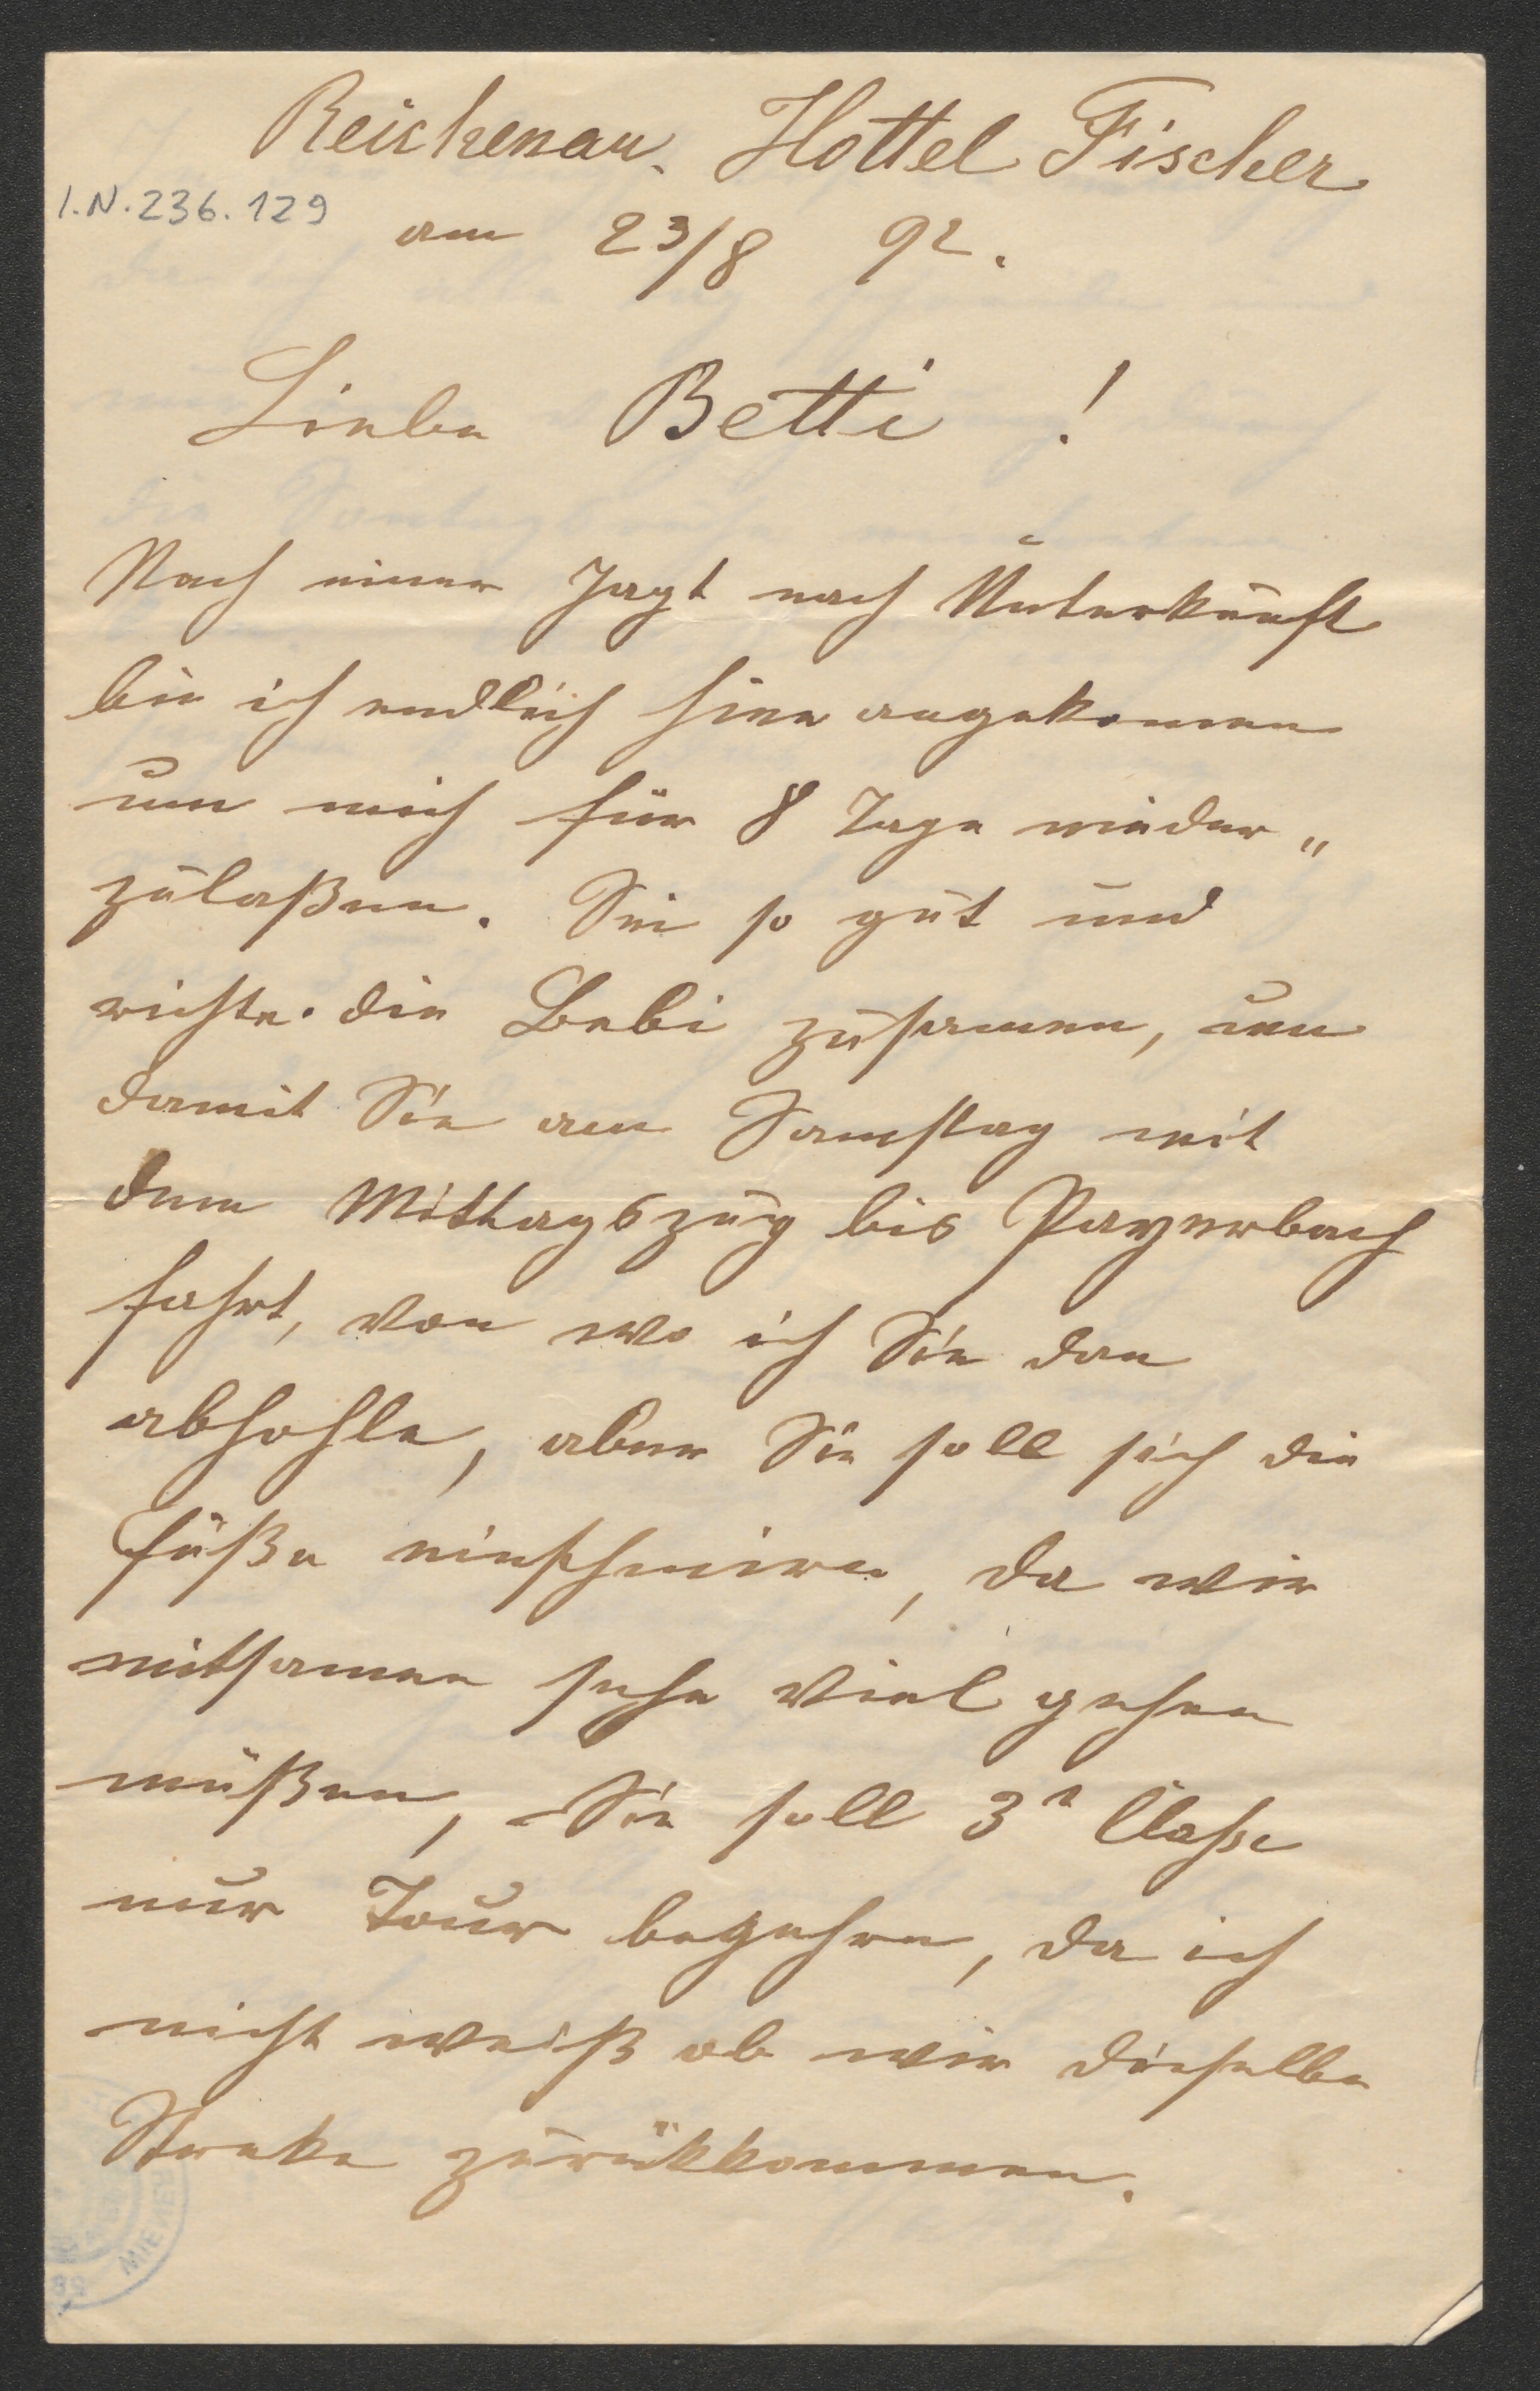 Reichenau, Hottel Fischer
I.N. 236.129
am 23/8 92.
Liebe Betti !
Nach einer Jagt nach Unterkunft
bin ich endlich hier angekomen
um mich für 8 Tage nieder„
zulaßen. Sei so gut und
richte die Bebi zusamen, um
damit Sie am Samstag mit
dem Mittagszug bis Payerbach
fahrt, von wo ich Sie dan
abhohle, aber Sie soll sich die
Füße einschmiren, da wir
mitsamen sehr viel gehen
müßen, Sie soll 3t Classe
nur Tour begehren, da ich
nicht weiß ob wir dieselbe
Streke zurükkommen.